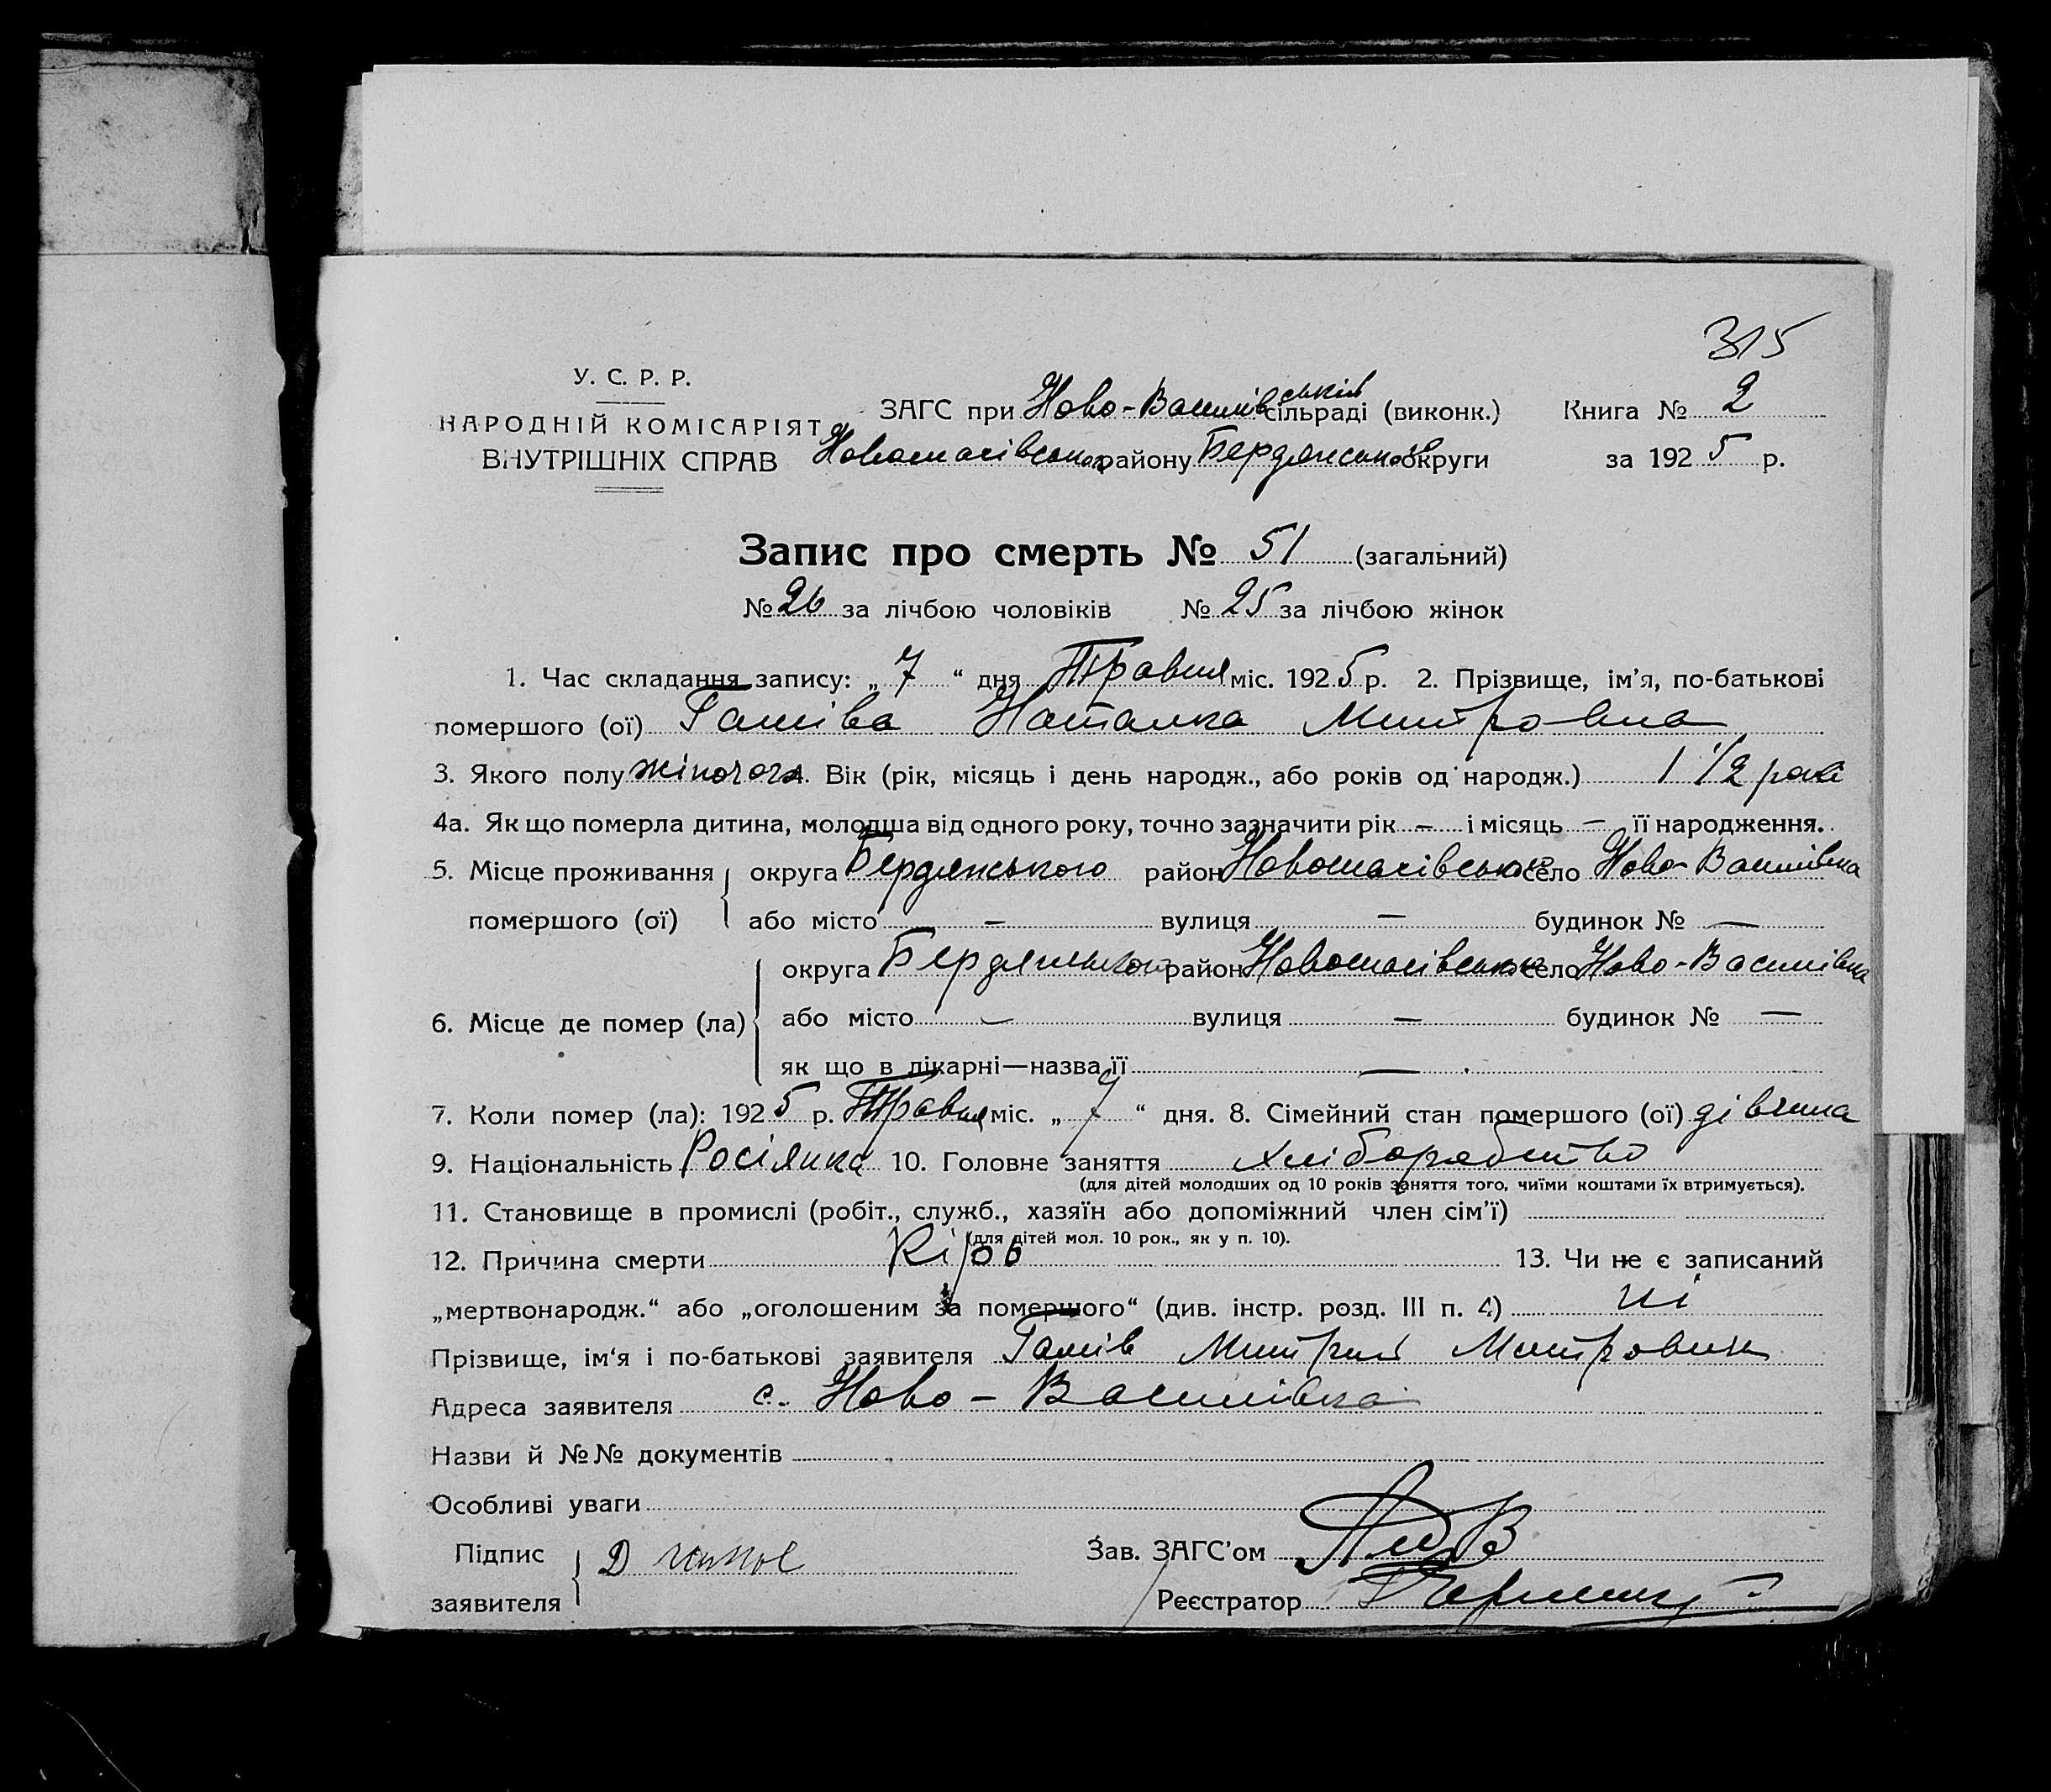 315
У. С. Р. Р.
НАРОДНІЙ КОМІСАРІЯТ
ВНУТРІШНІХ СПРАВ
ЗАГС при Ново-Василівській сільраді (виконк.) Книга № 2
району Бердянського округи за 1925 р.
Запис про смерть № 51 (загальний)
№ 26 за лічбою чоловіків № 25 за лічбою жінок
1. Час складання запису: „ 7 “ дня Травня міс. 1925 р. 2. Прізвище, ім’я, по-батькові
помершого (ої) Наталка Митровна
3. Якого полу жіночого 4. Вік (рік, місяць і день народж., або років од народж.) 1 1/2 років
4а. Як що померла дитина, молодша від одного року, точно зазначити рік — і місяць — її народження.
5. Місце проживання округа Бердянського район село Ново-Василівка
помершого (ої) або місто — вулиця — будинок № —
округа Бердянського район село Ново-Василівка
6. Місце де помер (ла) або місто — вулиця — будинок № —
як що в лікарні—назва її —
7. Коли помер (ла): 1925 р. Травня міс. „ 7 “ дня. 8. Сімейний стан помершого (ої) дівчина
9. Національність Росіянка 10. Головне заняття хліборобство
(для дітей молодших од 10 років заняття того, чиїми коштами їх втримується).
11. Становище в промислі (робіт., служб., хазяїн або допоміжний член сім’ї)
(для дітей мол. 10 рок., як у п. 10).
12. Причина смерти Кір 13. Чи не є записаний
„мертвонародж.“ або „оголошеним за помершого“ (див. інстр. розд. III п. 4) ні
Прізвище, ім‘я і по-батькові заявителя Митрий Митрович
Адреса заявителя с. Ново-Василівка
Назви й №№ документів
Особливі уваги
Підпис
заявителя
Зав. ЗАГС’ом
Реєстратор